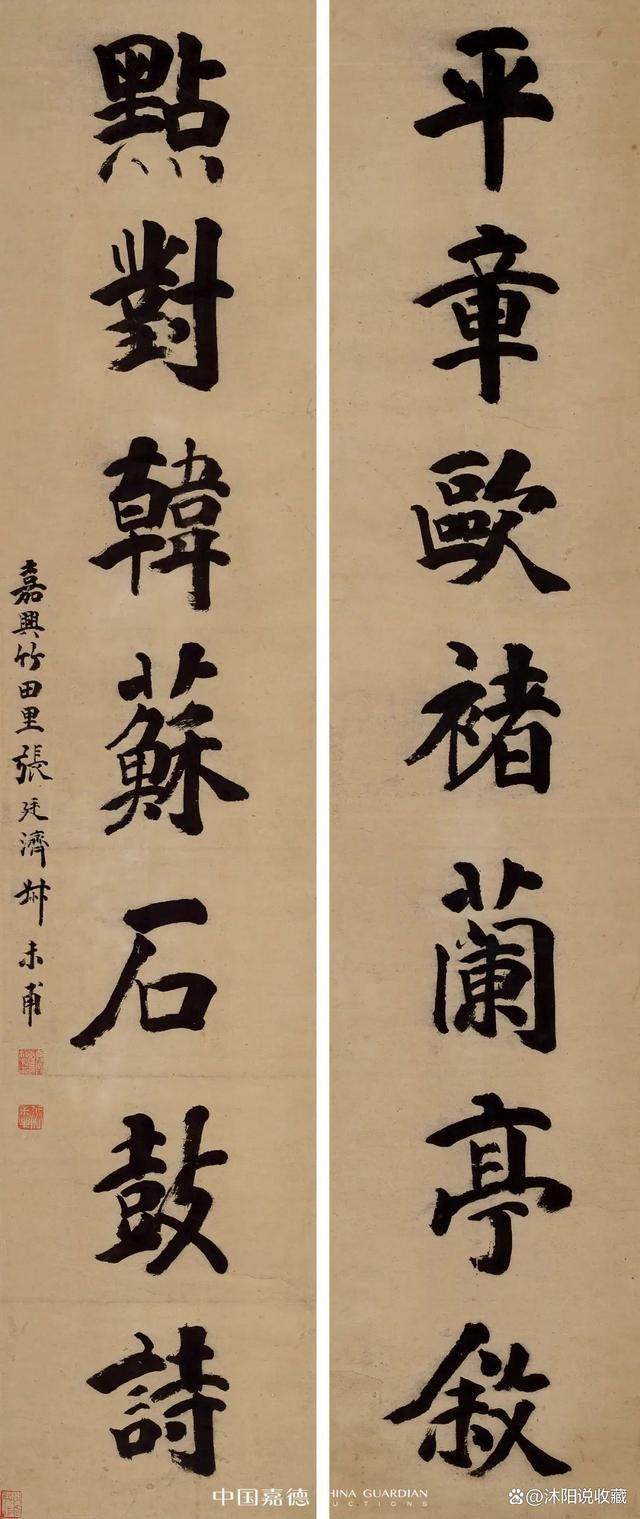 平章歐褚蘭亭敘
點對韓蘇石鼓詩
嘉興竹田里張廷濟尗未甫
中国嘉德
HINA GUARDIAN
UCTIONS
@沐阳说收藏